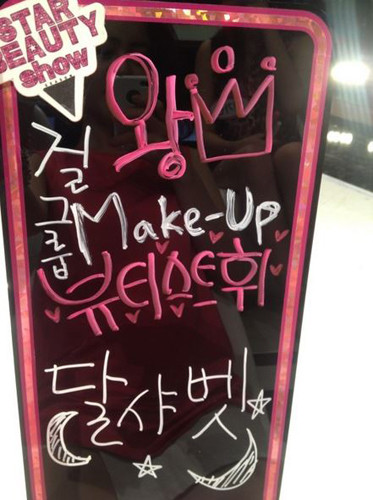 STAR
BEAUTY
show
왕
걸그룹
Make-Up
뷰티스트휘
달샤벳